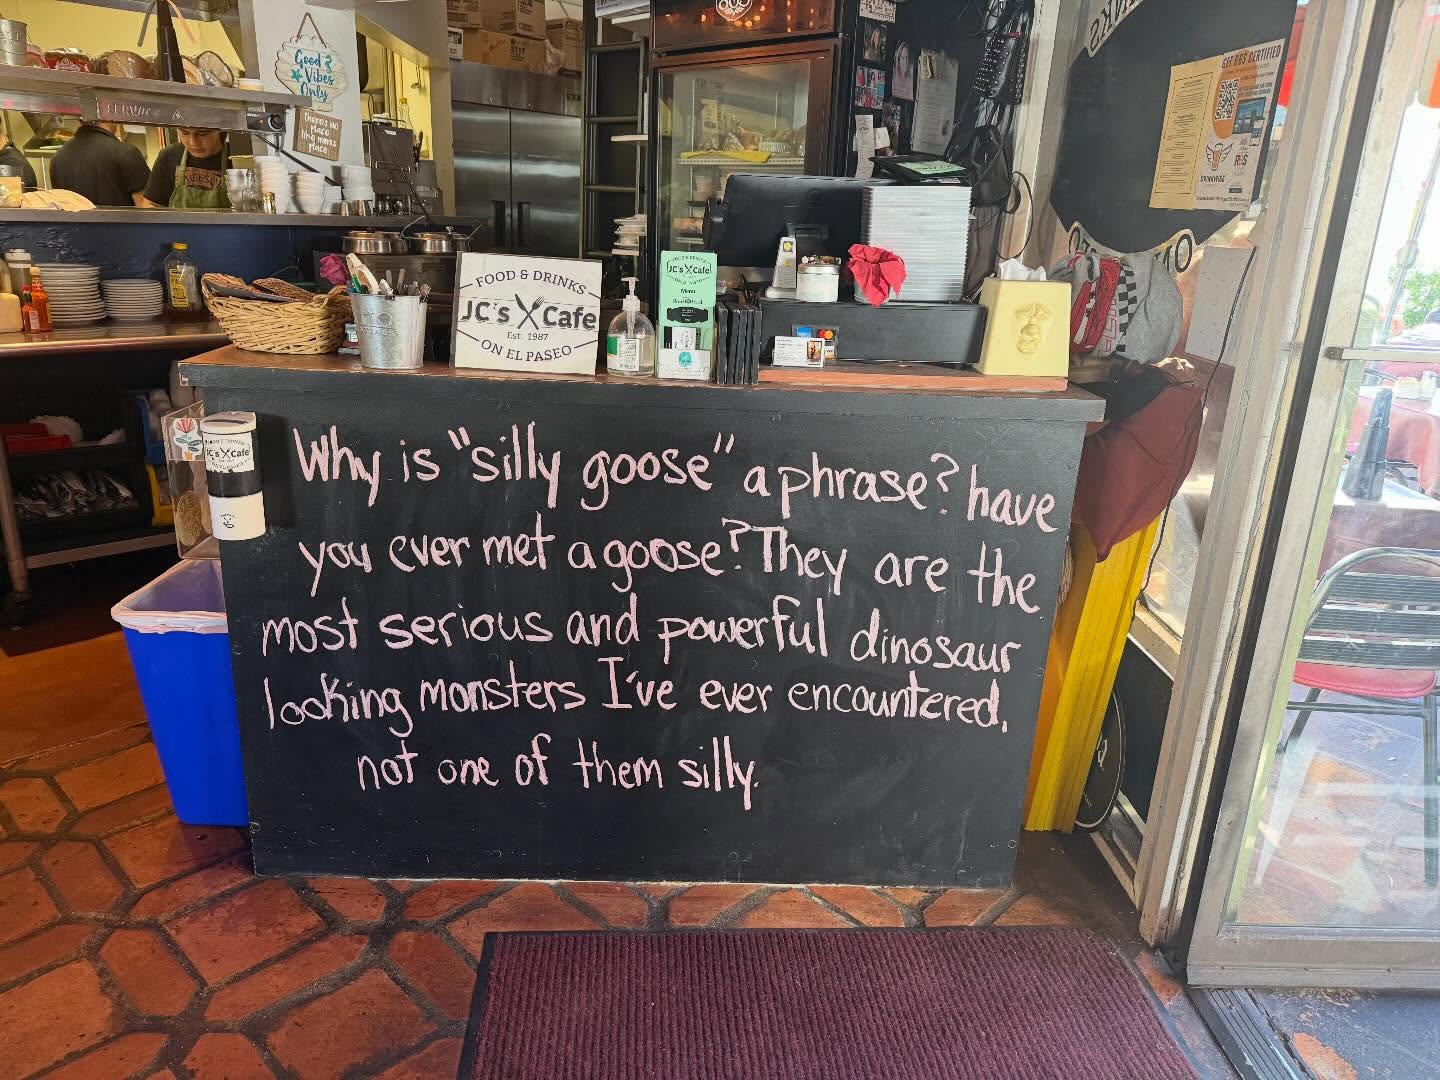 Good
Vibes
Only
there's no
place
like mama's
place
FOOD & DRINKS
JC's Cafe
Est. 1987
ON EL PASEO
JC's Cafe
Menu
JC's Cafe
GET RBS CERTIFIED
DRINKWISE
RBS
Why is "silly goose" a phrase? have
you ever met a goose? They are the
most serious and powerful dinosaur
looking monsters I've ever encountered,
not one of them silly.